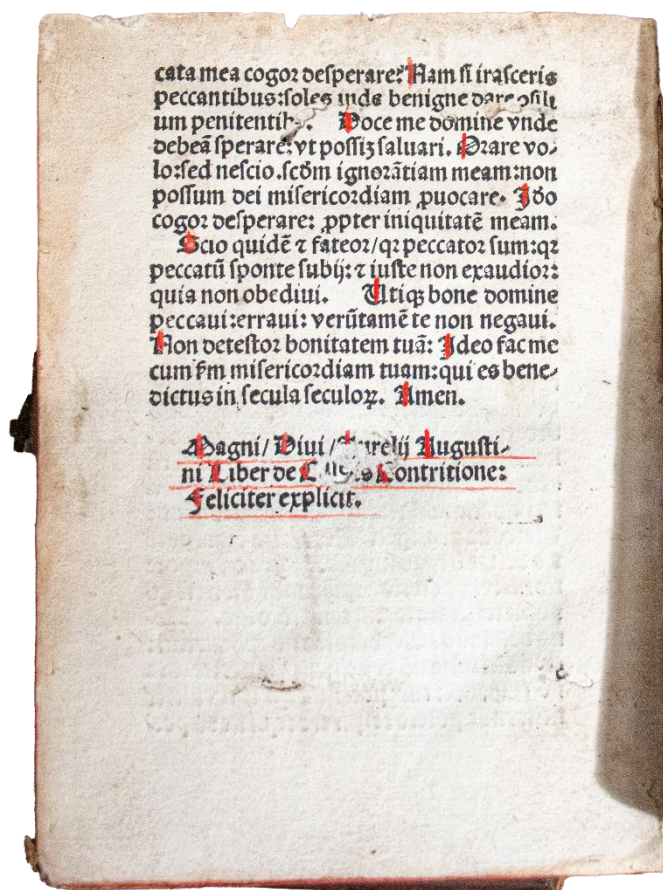 cata mea cogoꝛ deſperare? Nam ſi iraſceris
peccantibus: ſoles inde benigne dare ꝯſili
um penitentib. Doce me domine vnde
debeā ſperare: vt poſſiꝫ ſaluari. Orare vo⸗
lo: ſed neſcio. ſcđm ignorātiam meam: non
poſſum dei miſericordiam ꝓuocare. Iđo
cogoꝛ deſperare: ꝓpter iniquitatē meam.
Scio quidē ⁊ fateoꝛ/ qꝛ peccatoꝛ ſum: qꝛ
peccatū ſponte ſubij: ⁊ iuſte non exaudioꝛ:
quia non obediui. Utiqꝫ bone domine
peccaui: erraui: verūtamē te non negaui.
Non deteſtoꝛ bonitatem tuā: Ideo fac me
cum ſm̄ miſericordiam tuam: qui es bene⸗
dictus in ſecula ſeculoꝝ. Amen.
Magni/ Diui/ Aurelij Auguſti⸗
ni Liber de Contritione:
Feliciter explicit.